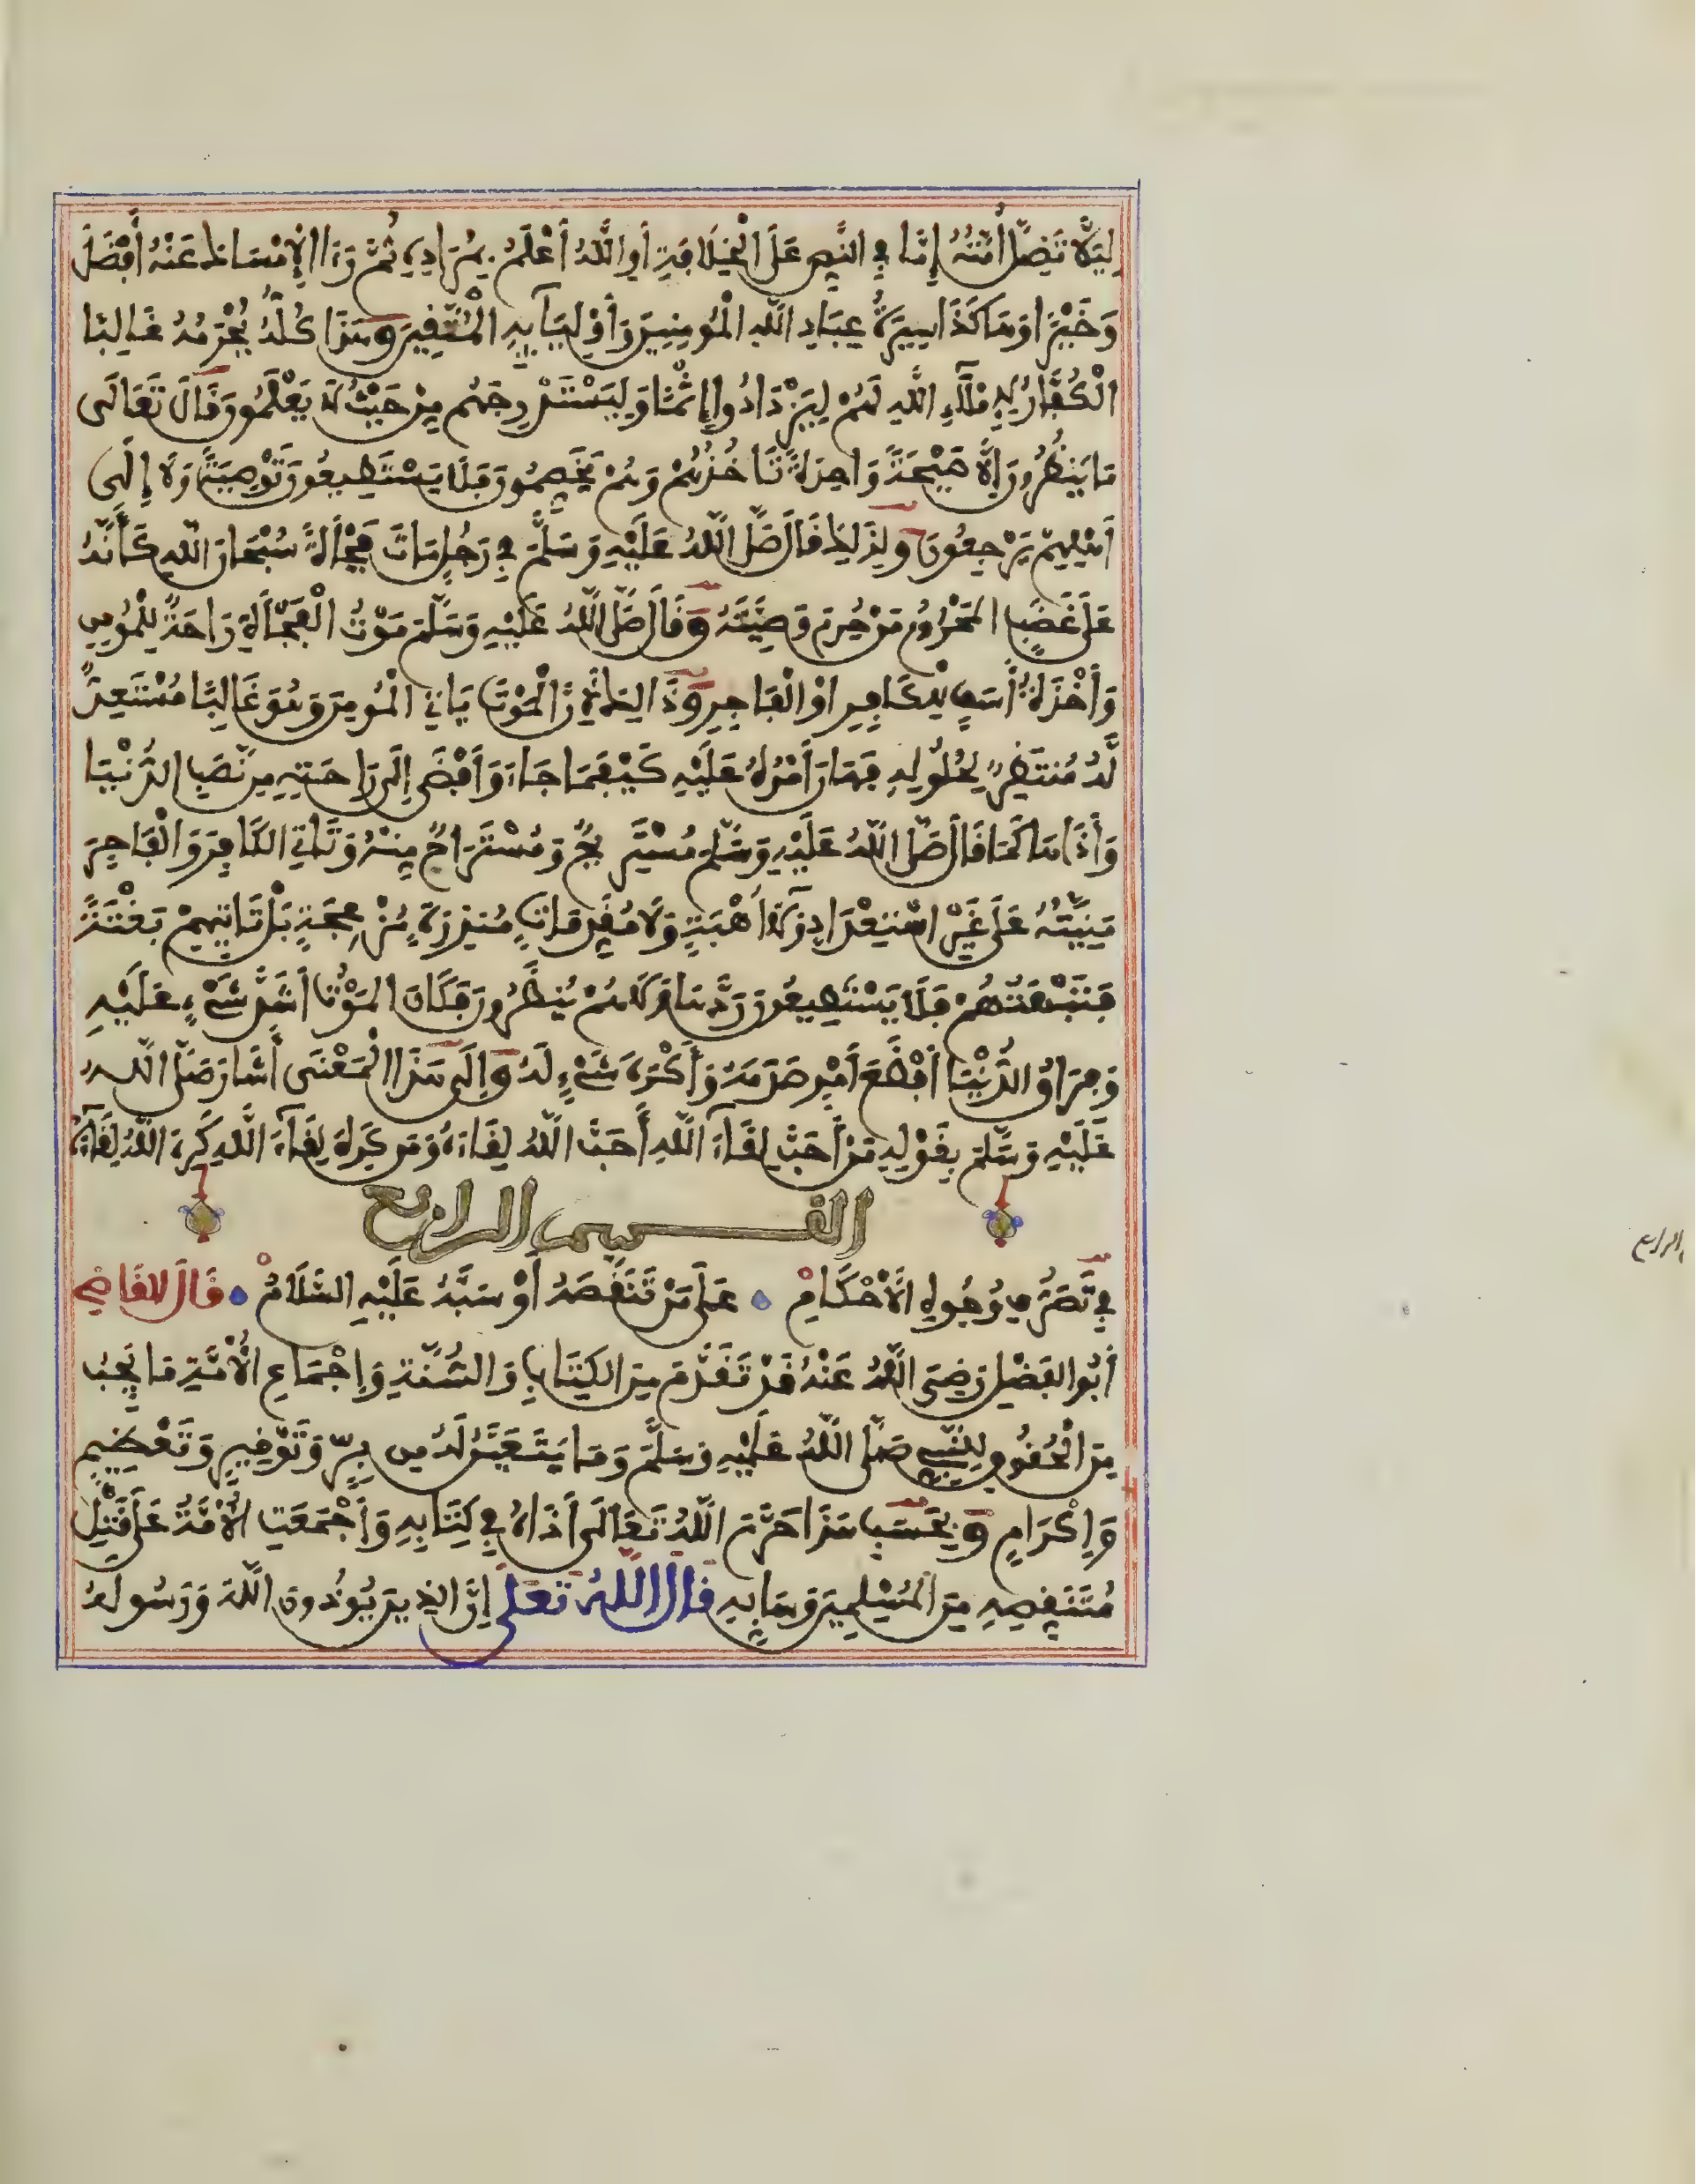 لِيَلَّا تَضِلَّ أُمَّتُهُ إِمَّا فِي النَّصِّ عَلَى الْخِلَافَةِ أَوِ اللَّهُ أَعْلَمُ بِمُرَادِهِ ثُمَّ رَءَا الْإِمْسَاكَ عَنْهُ أَفْضَلَ
وَخَيْرًا وَهَاكَذَا سِيرَةُ عِبَادِ اللَّهِ الْمُومِنِينَ وَأَوْلِيَآئِهِ الْمُتَّقِينَ وَهَذَا كُلُّهُ يُحْرَمُهُ غَالِبًا
الْكُفَّارُ لِإِمْلَآءِ اللَّهِ لَهُمْ لِيَزْدَادُوا إِثْمًا وَلِيَسْتَدْرِجَهُم مِنْ حَيْثُ لَا يَعْلَمُونَ وَقَالَ تَعَالَى
مَا يَنظُرُونَ إِلَّا صَيْحَةً وَاحِدَةً تَاخُذُهُمْ وَهُمْ يَخَصِّمُونَ فَلَا يَسْتَطِيعُونَ تَوْصِيَةً وَلَا إِلَى
أَهْلِهِمْ يَرْجِعُونَ وَلِذَلِكَ قَالَ صَلَّى اللَّهُ عَلَيْهِ وَسَلَّمَ فِي رَجُلٍ مَاتَ فَجْأَةً سُبْحَانَ اللَّهِ كَأَنَّهُ
عَلَى غَضَبٍ الْمَحْرُومُ مَنْ حُرِمَ وَصِيَّتَهُ وَقَالَ صَلَّى اللَّهُ عَلَيْهِ وَسَلَّمَ مَوْتُ الْفَجْأَةِ رَاحَةٌ لِلْمُومِنِ
وَأَخْذَةُ أَسَفٍ لِلْكَافِرِ أَوِ الْفَاجِرِ وَذَالِكَ لِأَنَّ الْمَوْتَ يَاتِي الْمُومِنَ وَهُوَ غَالِبًا مُسْتَعِدٌّ
لَّهُ مُنتَظِرٌ لِحُلُولِهِ فَهَانَ أَمْرُهُ عَلَيْهِ كَيْفَمَا جَاءَ وَأَفْضَى إِلَى رَاحَتِهِ مِن نَّصَبِ الدُّنْيَا
وَأَذَاهَا كَمَا قَالَ صَلَّى اللَّهُ عَلَيْهِ وَسَلَّمَ مُسْتَرِيحٌ وَمُسْتَرَاحٌ مِنْهُ وَتَاتِي الْكَافِرَ وَالْفَاجِرَ
مَنِيَّتُهُ عَلَى غَيْرِ اسْتِعْدَادٍ وَلَا أُهْبَةٍ وَلَا مُقَدِّمَاتٍ مُنذِرَةٍ مُزْعِجَةٍ بَلْ تَاتِيهِمْ بَغْتَةً
فَتَبْهَتُهُمْ فَلَا يَسْتَطِيعُونَ رَدَّهَا وَلَا هُمْ يُنظَرُونَ فَكَانَ الْمَوْتُ أَشَدَّ شَيْءٍ عَلَيْهِ
وَفِرَاقُ الدُّنْيَا أَفْظَعَ أَمْرٍ صَدَمَهُ وَأَكْرَهَ شَيْءٍ لَهُ وَإِلَى هَذَا الْمَعْنَى أَشَارَ صَلَّى اللَّهُ
عَلَيْهِ وَسَلَّمَ بِقَوْلِهِ مَنْ أَحَبَّ لِقَآءَ اللَّهِ أَحَبَّ اللَّهُ لِقَاءَهُ وَمَن كَرِهَ لِقَآءَ اللَّهِ كَرِهَ اللَّهُ لِقَآءَهُ
القسم الرابع
الرابع
فِي تَصَرُّفِ وُجُوهِ الْأَحْكَامْ عَلَى مَنْ تَنَقَّصَهُ أَوْ سَبَّهُ عَلَيْهِ السَّلَامُ قَالَ القَاضِي
أَبُو الفَضْلِ رَضِيَ اللَّهُ عَنْهُ قَدْ تَقَدَّمَ مِنَ الكِتَابِ وَالسُّنَّةِ وَإِجْمَاعِ الْأُمَّةِ مَا يَجِبُ
مِنَ الْحُقُوقِ لِلنَّبِيِّ صَلَّى اللَّهُ عَلَيْهِ وَسَلَّمَ وَمَا يَتَعَيَّنُ لَهُ مِن بِرٍّ وَتَوْقِيرٍ وَتَعْظِيمٍ
وَإِكْرَامٍ وَبِحَسَبِ هَذَا حَرَّمَ اللَّهُ تَعَالَى أَذَاهُ فِي كِتَابِهِ وَأَجْمَعَتِ الْأُمَّةُ عَلَى قَتْلِ
مُتَنَقِّصِهِ مِنَ الْمُسْلِمِينَ وَسَابِّهِ قَالَ اللَّهُ تَعَلَى إِنَّ الذِينَ يُوذُونَ اللَّهَ وَرَسُولَهُ